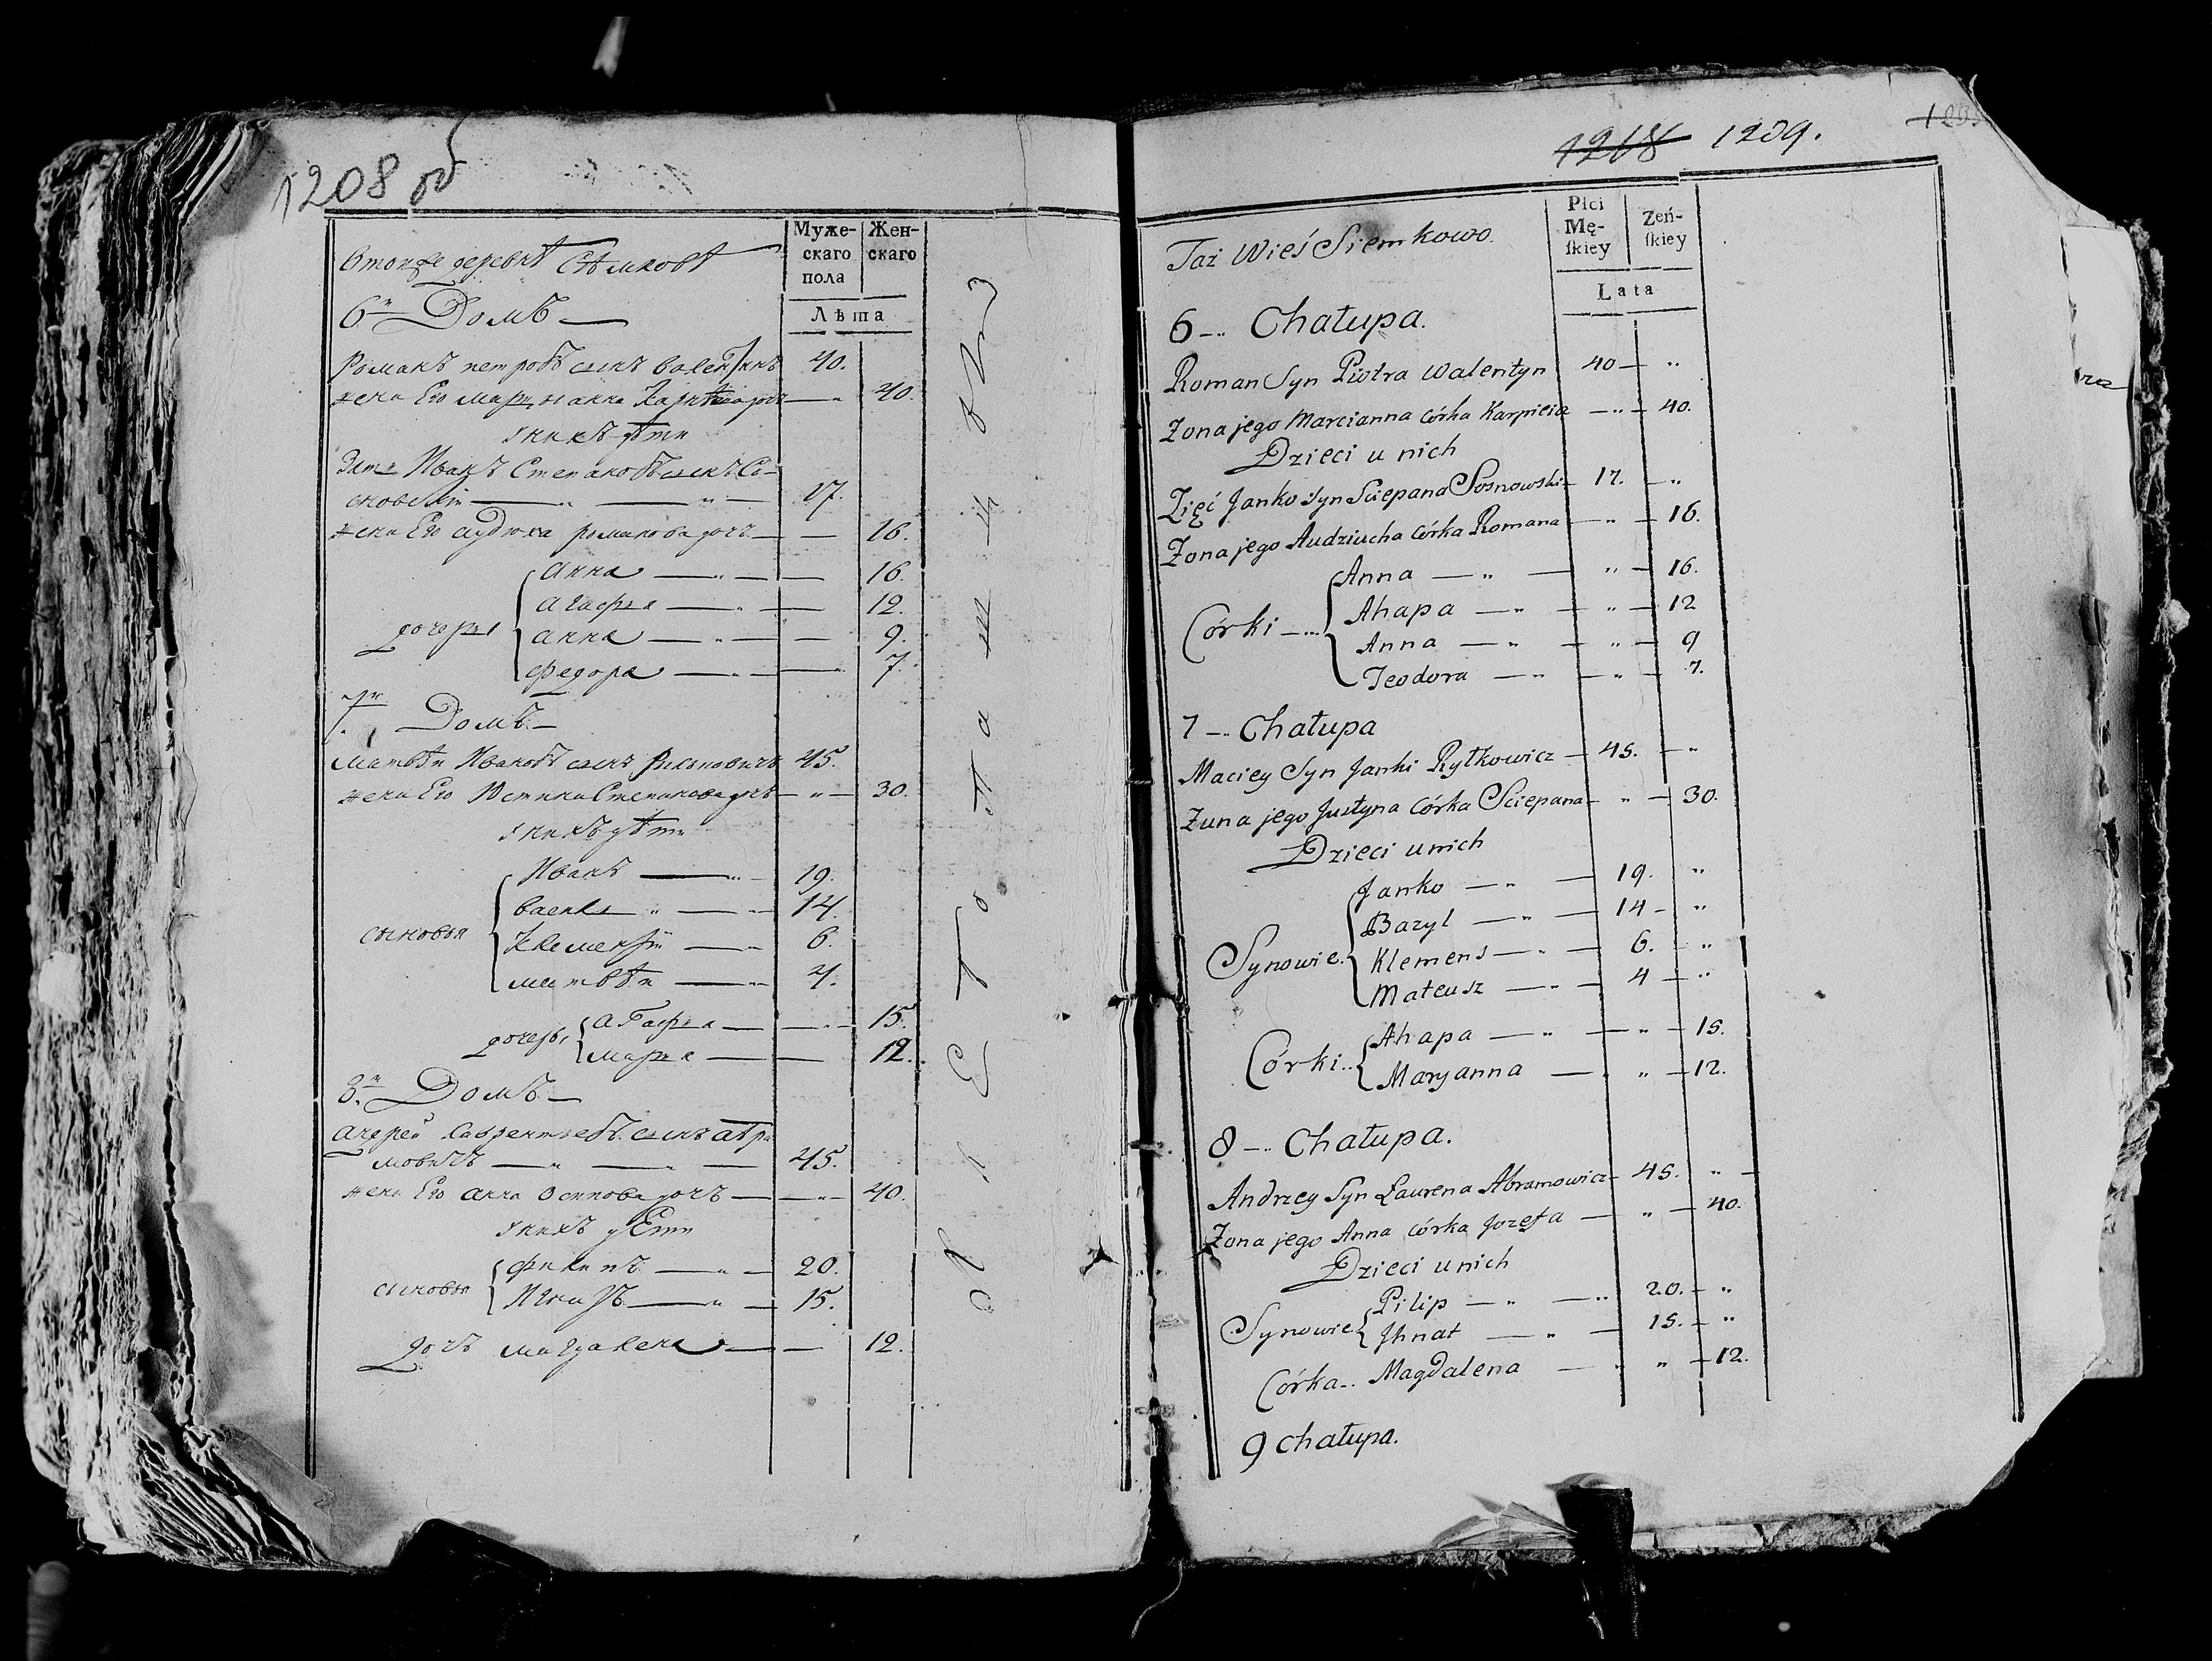 1208 об
Втойже деревнѣ Сѣмковѣ
Муже-
скаго
пола
Жен-
скаго
Лѣта
6й Домъ
Романъ петровъ сынъ валентинъ 40.
жена Его марцыанна Карпѣева дочь 40.
У нихъ дѣти
Зять Иванъ Степановъ сынъ Со-
сновскiй 17.
жена Его аудюха романова дочь 16.
дочери
Анна 16.
агафья 12.
анна 9.
федора 7.
7й Домъ
матвѣй Ивановъ сынъ 45.
жена Его Юстина Степанова дочь 30.
У нихъ дѣти
сыновья
Иванъ 19.
василь 14.
Клементiй 6.
матвѣй 4.
дочери
агафья 15.
марья 12.
8й Домъ
андрей лаврентьевъ сынъ абра
мовичъ 45.
жена Его анна осипова дочь 40.
У нихъ дѣти
сыновья
филипъ 20.
Игнатъ 15.
дочь магдалена 12.
1218 1209.
Taż Wieś Siemkowo.
Płci
Mę-
ſkiey
Zeń-
ſkiey
Lata
6 Chałupa.
Roman Syn Piotra Walentyn 40 "
Żona jego Marcianna Córka Karpieia " 40.
Dzieci u nich
Zięć Janko Syn Sciepana Sosnowski 17. "
Żona jego Audziucha Córka Romana " 16.
Córki
Anna " " 16.
Ahapa " " 12
Anna " " 9
Teodora " " 7.
7 Chałupa
Maciey Syn Janki Rytkowicz 45. "
Żuna jego Justyna Córka Sciepana " 30.
Dzieci u nich
Synowie
Janko " 19. "
Bazyl " 14 "
Klemens " 6. "
Mateusz " 4 "
Córki
Ahapa " " 15.
Maryanna " 12.
8 Chałupa.
Andrzey Syn Łaurena Abramowicz 45. "
Żona jego Anna Córka Jozefa " 40.
Dzieci u nich
Synowie
Pilip " 20. "
Jhnat " 15. "
Córka Magdalena " 12.
9 Chałupa.